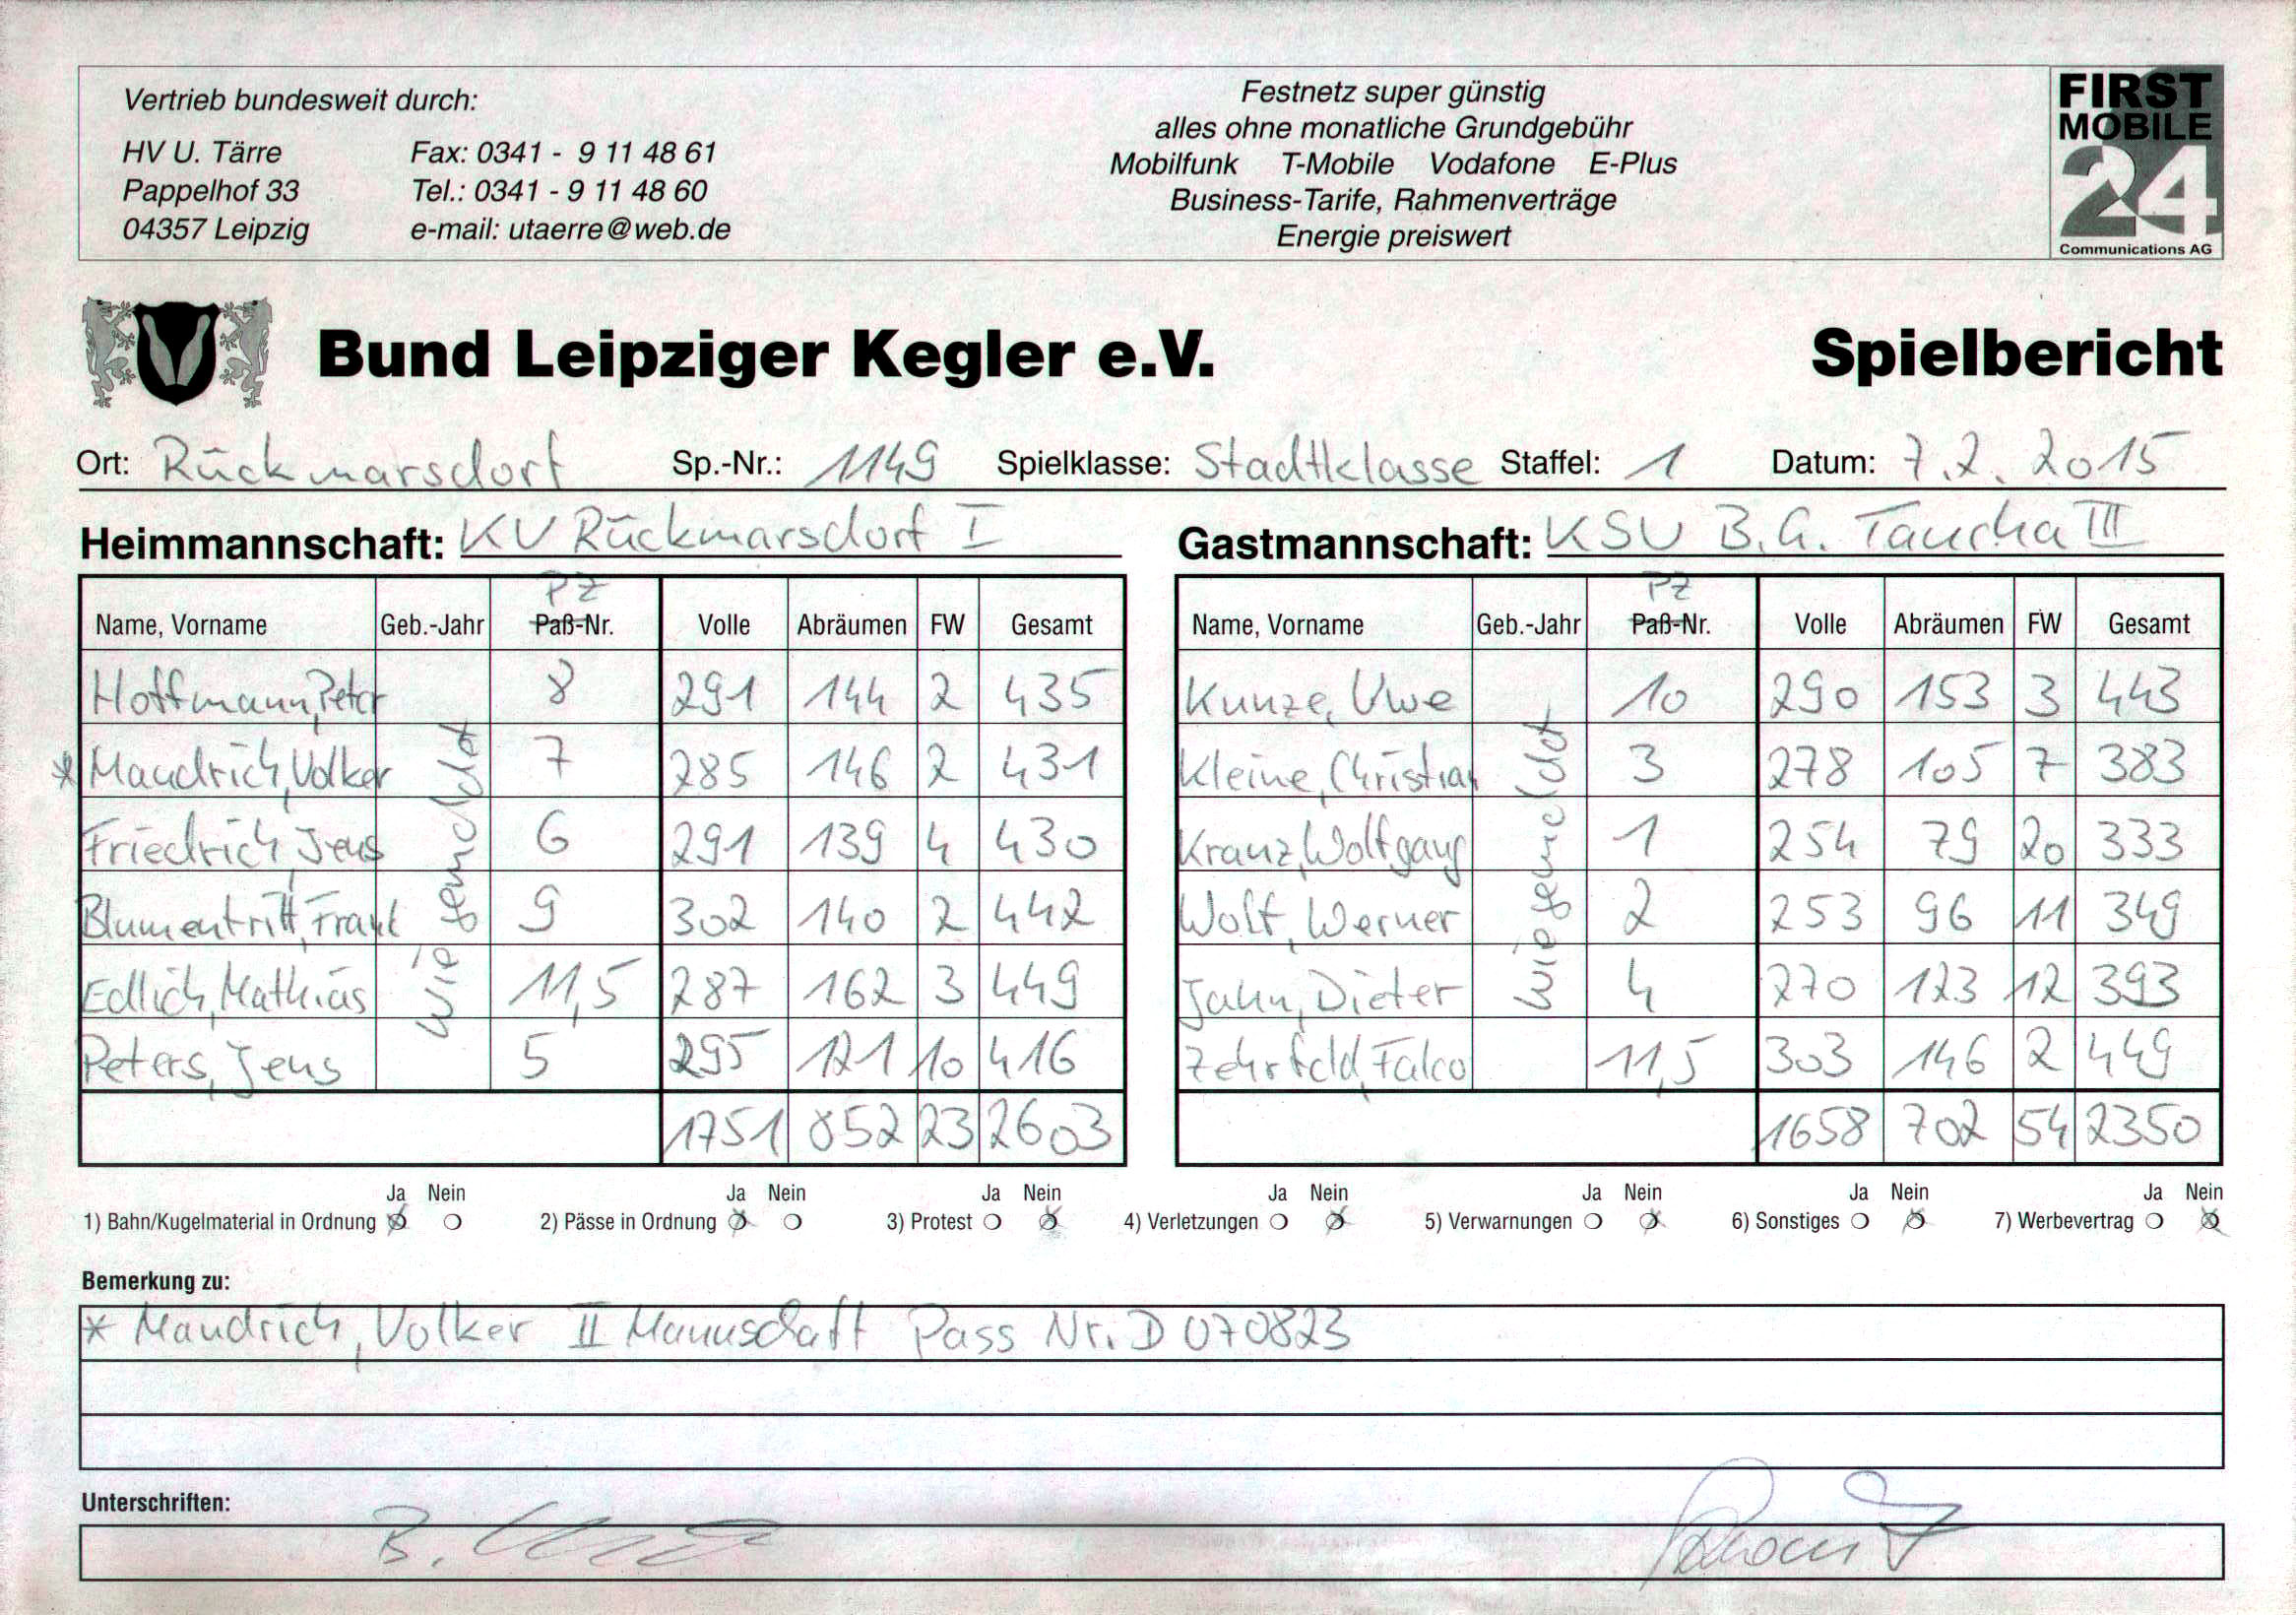 Vertrieb bundesweit durch:
HV U. Tärre Fax: 0341 - 9 11 48 61
Pappelhof 33 Tel.: 0341 - 9 11 48 60
04357 Leipzig e-mail: utaerre@web.de
Festnetz super günstig
alles ohne monatliche Grundgebühr
Mobilfunk T-Mobile Vodafone E-Plus
Business-Tarife, Rahmenverträge
Energie preiswert
FIRST
MOBILE
24
Communications AG
Bund Leipziger Kegler e.V. Spielbericht
Ort: Rückmarsdorf Sp.-Nr.: 1149 Spielklasse: Stadtklasse Staffel: 1 Datum: 7.2.2015
Heimmannschaft: KV Rückmarsdorf I
PZ
Name, Vorname Geb.-Jahr Paß-Nr. Volle Abräumen FW Gesamt
Hoffmann, Peter 8 291 144 2 435
* Mandrich, Volker 7 285 146 2 431
Friedrich, Jens 6 291 139 4 430
Blumentritt, Frank 9 302 140 2 442
Edlich, Mathias 11,5 287 162 3 449
Peters, Jens 5 295 121 10 416
wie gemeldet
1751 852 23 2603
Gastmannschaft: KSV B.G. Taucha III
PZ
Name, Vorname Geb.-Jahr Paß-Nr. Volle Abräumen FW Gesamt
Kunze, Uwe 10 290 153 3 443
Kleine, Christian 3 278 105 7 383
Kranz, Wolfgang 1 254 79 20 333
Wolf, Werner 2 253 96 11 349
Jahn, Dieter 4 270 123 12 393
Zehrfeld, Falco 11,5 303 146 2 449
wie gemeldet
1658 702 54 2350
Ja Nein Ja Nein Ja Nein Ja Nein Ja Nein Ja Nein Ja Nein
1) Bahn/Kugelmaterial in Ordnung 2) Pässe in Ordnung 3) Protest 4) Verletzungen 5) Verwarnungen 6) Sonstiges 7) Werbevertrag
Bemerkung zu:
* Mandrich, Volker II Mannschaft Pass Nr. D 070823
Unterschriften:
B.